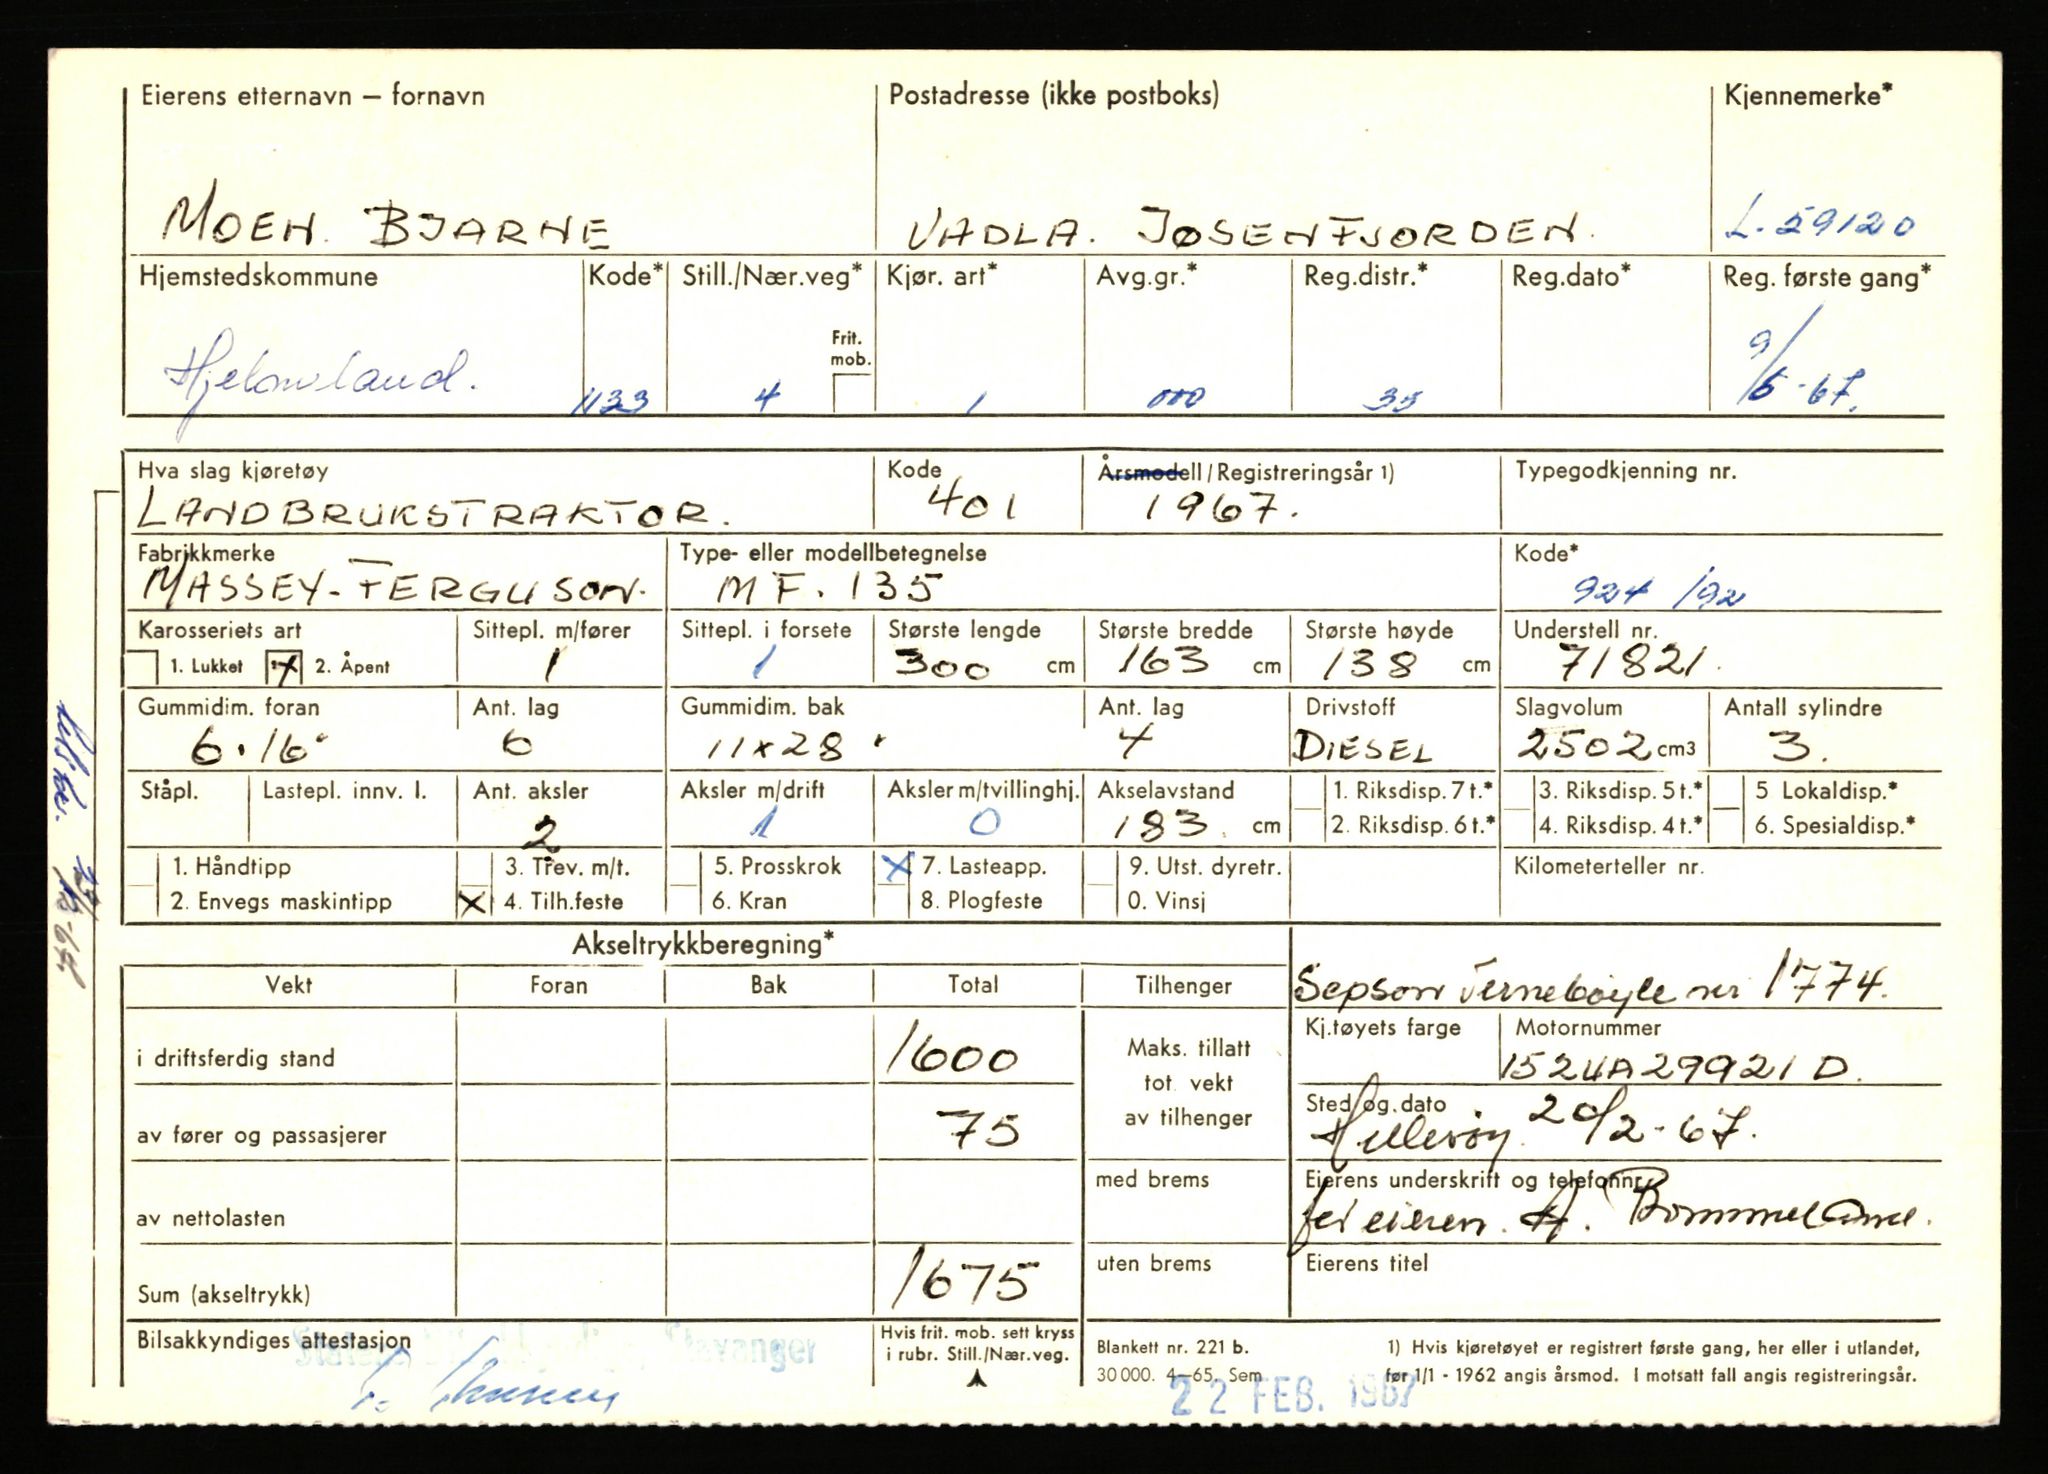 Eierens etternavn – fornavn Postadresse (ikke postboks) Kjennemerke*
MOEN. BJARNE VADLA. JØSENFJORDEN. L-59120
Hjemstedskommune Kode* Still./Nær.veg* Kjør. art* Avg.gr.* Reg.distr.* Reg.dato* Reg. første gang*
Frit. mob.
Hjelmeland. 1133 4 1 000 35 9/5-67.
Hva slag kjøretøy Kode Årsmodell/Registreringsår 1) Typegodkjenning nr.
LANDBRUKSTRAKTOR. 401 1967.
Fabrikkmerke Type- eller modellbetegnelse Kode*
MASSEY-FERGUSON. MF. 135 924 /92
Karosseriets art Sittepl. m/fører Sittepl. i forsete Største lengde Største bredde Største høyde Understell nr.
1. Lukket x 2. Åpent 1 1 300 cm 163 cm 138 cm 71821.
Gummidim. foran Ant. lag Gummidim. bak Ant. lag Drivstoff Slagvolum Antall sylindre
6.16" 6 11x28" 4 DIESEL 2502 cm3 3.
Ståpl. Lastepl. innv. l. Ant. aksler Aksler m/drift Aksler m/tvillinghj. Akselavstand 1. Riksdisp. 7 t.* 3. Riksdisp. 5 t.* 5 Lokaldisp.*
2 1 0 183. cm 2. Riksdisp. 6 t.* 4. Riksdisp. 4 t.* 6. Spesialdisp.*
1. Håndtipp 3. Trev. m/t. 5. Prosskrok x 7. Lasteapp. 9. Utst. dyretr. Kilometerteller nr.
2. Envegs maskintipp x 4. Tilh.feste 6. Kran 8. Plogfeste 0. Vinsj
Akseltrykkberegning*
Vekt Foran Bak Total Tilhenger Sepson Vernebøyle nr 1774.
i driftsferdig stand 1600 Maks. tillatt tot. vekt av tilhenger Kj.tøyets farge Motornummer
152UA29921D.
av fører og passasjerer 75 Sted og dato
20/2-67.
av nettolasten med brems Eierens underskrift og telefonnr.
for eieren. A. Bommeland.
Sum (akseltrykk) 1675 uten brems Eierens titel
Bilsakkyndiges attestasjon Hvis frit. mob. sett kryss i rubr. Still./Nær.veg. Blankett nr. 221 b. 1) Hvis kjøretøyet er registrert første gang, her eller i utlandet,
30 000. 4–65. Sem før 1/1 - 1962 angis årsmod. I motsatt fall angis registreringsår.
Stavanger
22 FEB. 1967